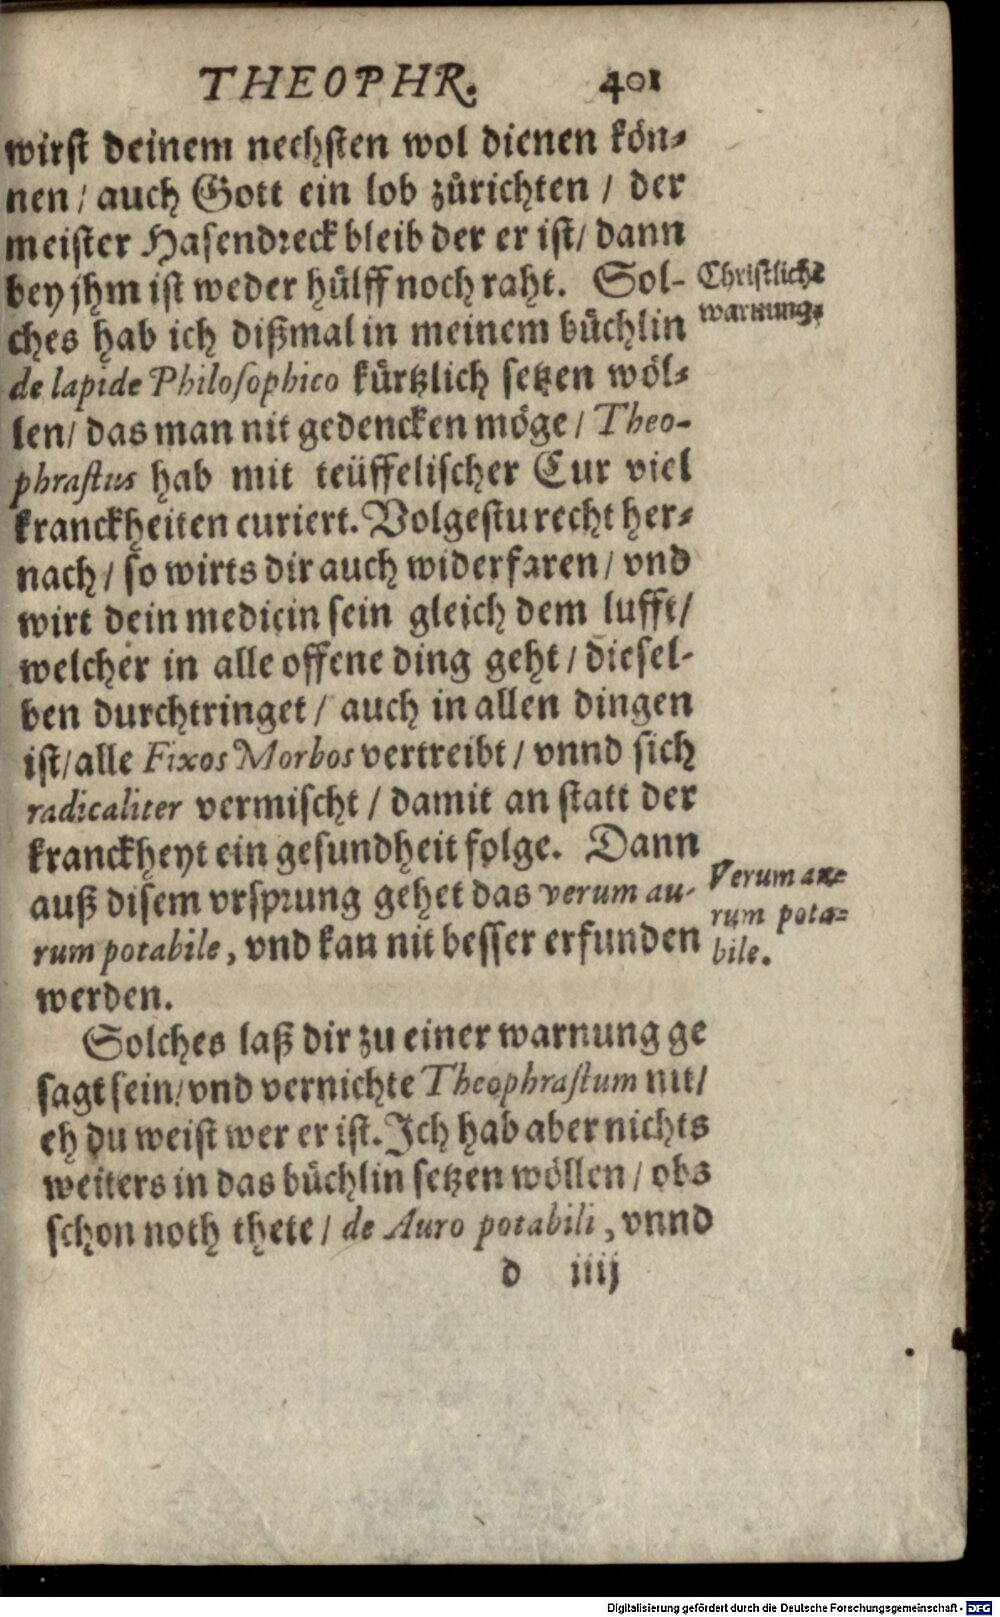 THEOPHR. 401
wirst deinem nechsten wol dienen kön-
nen / auch Gott ein lob zůrichten / der
meister Hasendreck bleib der er ist / dann
bey jhm ist weder hülff noch raht. Sol-
Christliche
ches hab ich dißmal in meinem büchlin
warnung.
de lapide Philosophico kürtzlich setzen wöl-
len / das man nit gedencken möge / Theo-
phrastus hab mit teüffelischer Cur viel
kranckheiten curiert. Volgestu recht her-
nach / so wirts dir auch widerfaren / vnd
wirt dein medicin sein gleich dem lufft /
welcher in alle offene ding geht / diesel-
ben durchtringet / auch in allen dingen
ist / alle Fixos Morbos vertreibt / vnnd sich
radicaliter vermischt / damit an statt der
kranckheyt ein gesundheit folge. Dann
auß disem vrsprung gehet das verum au-
Verum au-
rum pota-
rum potabile, vnd kan nit besser erfunden
bile.
werden.
Solches laß dir zu einer warnung ge
sagt sein / vnd vernichte Theophrastum nit /
eh du weist wer er ist. Ich hab aber nichts
weiters in das büchlin setzen wöllen / obs
schon noth thete / de Auro potabili, vnnd
d iiij
Digitalisierung gefördert durch die Deutsche Forschungsgemeinschaft - DFG